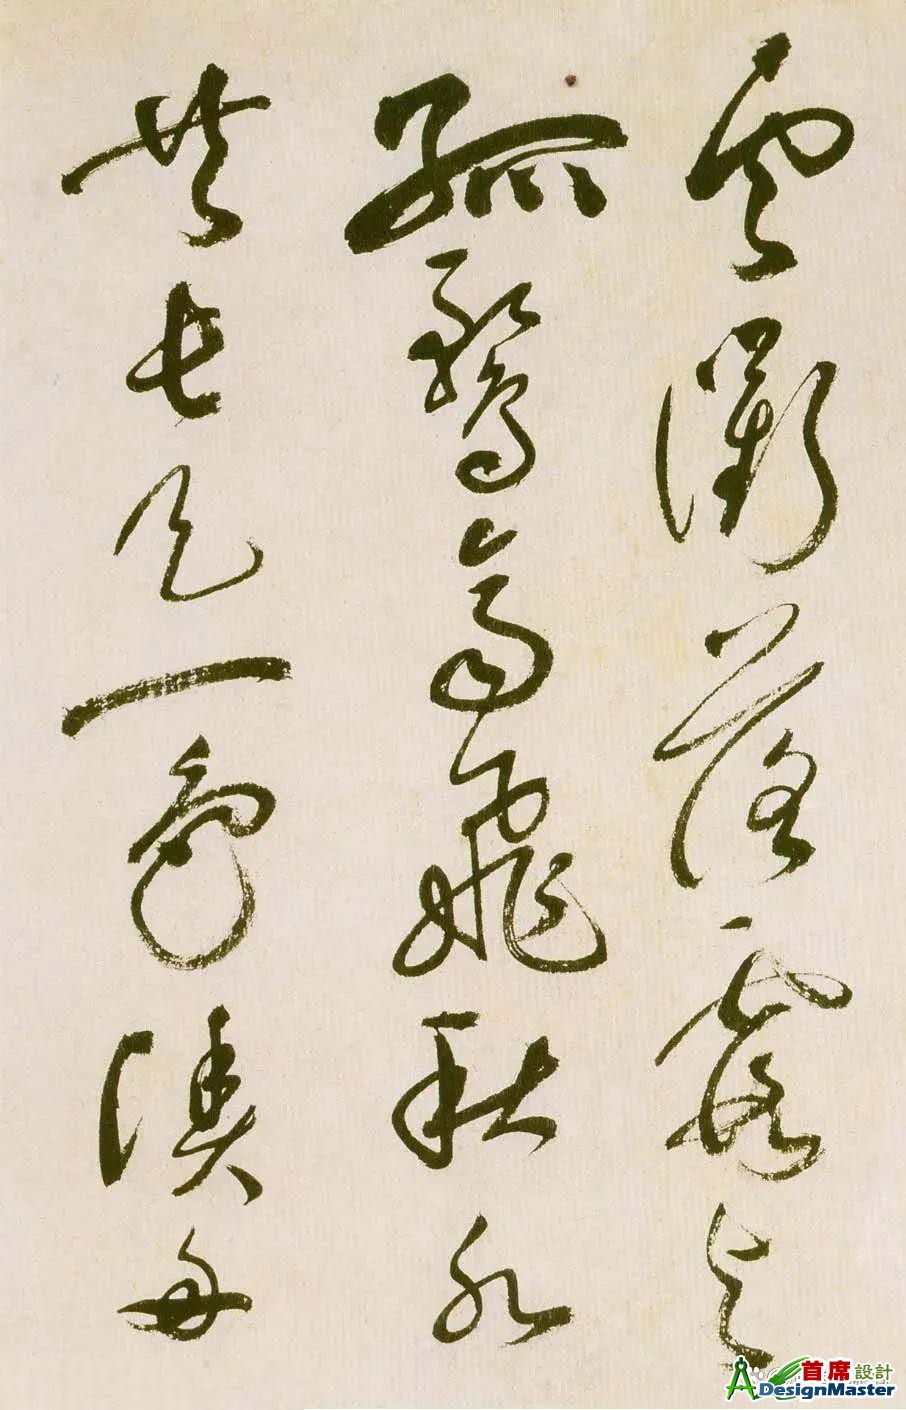 雲衢落霞与
孤鶩齊飛秋水
共長天一色漁舟
首席設計
DesignMaster